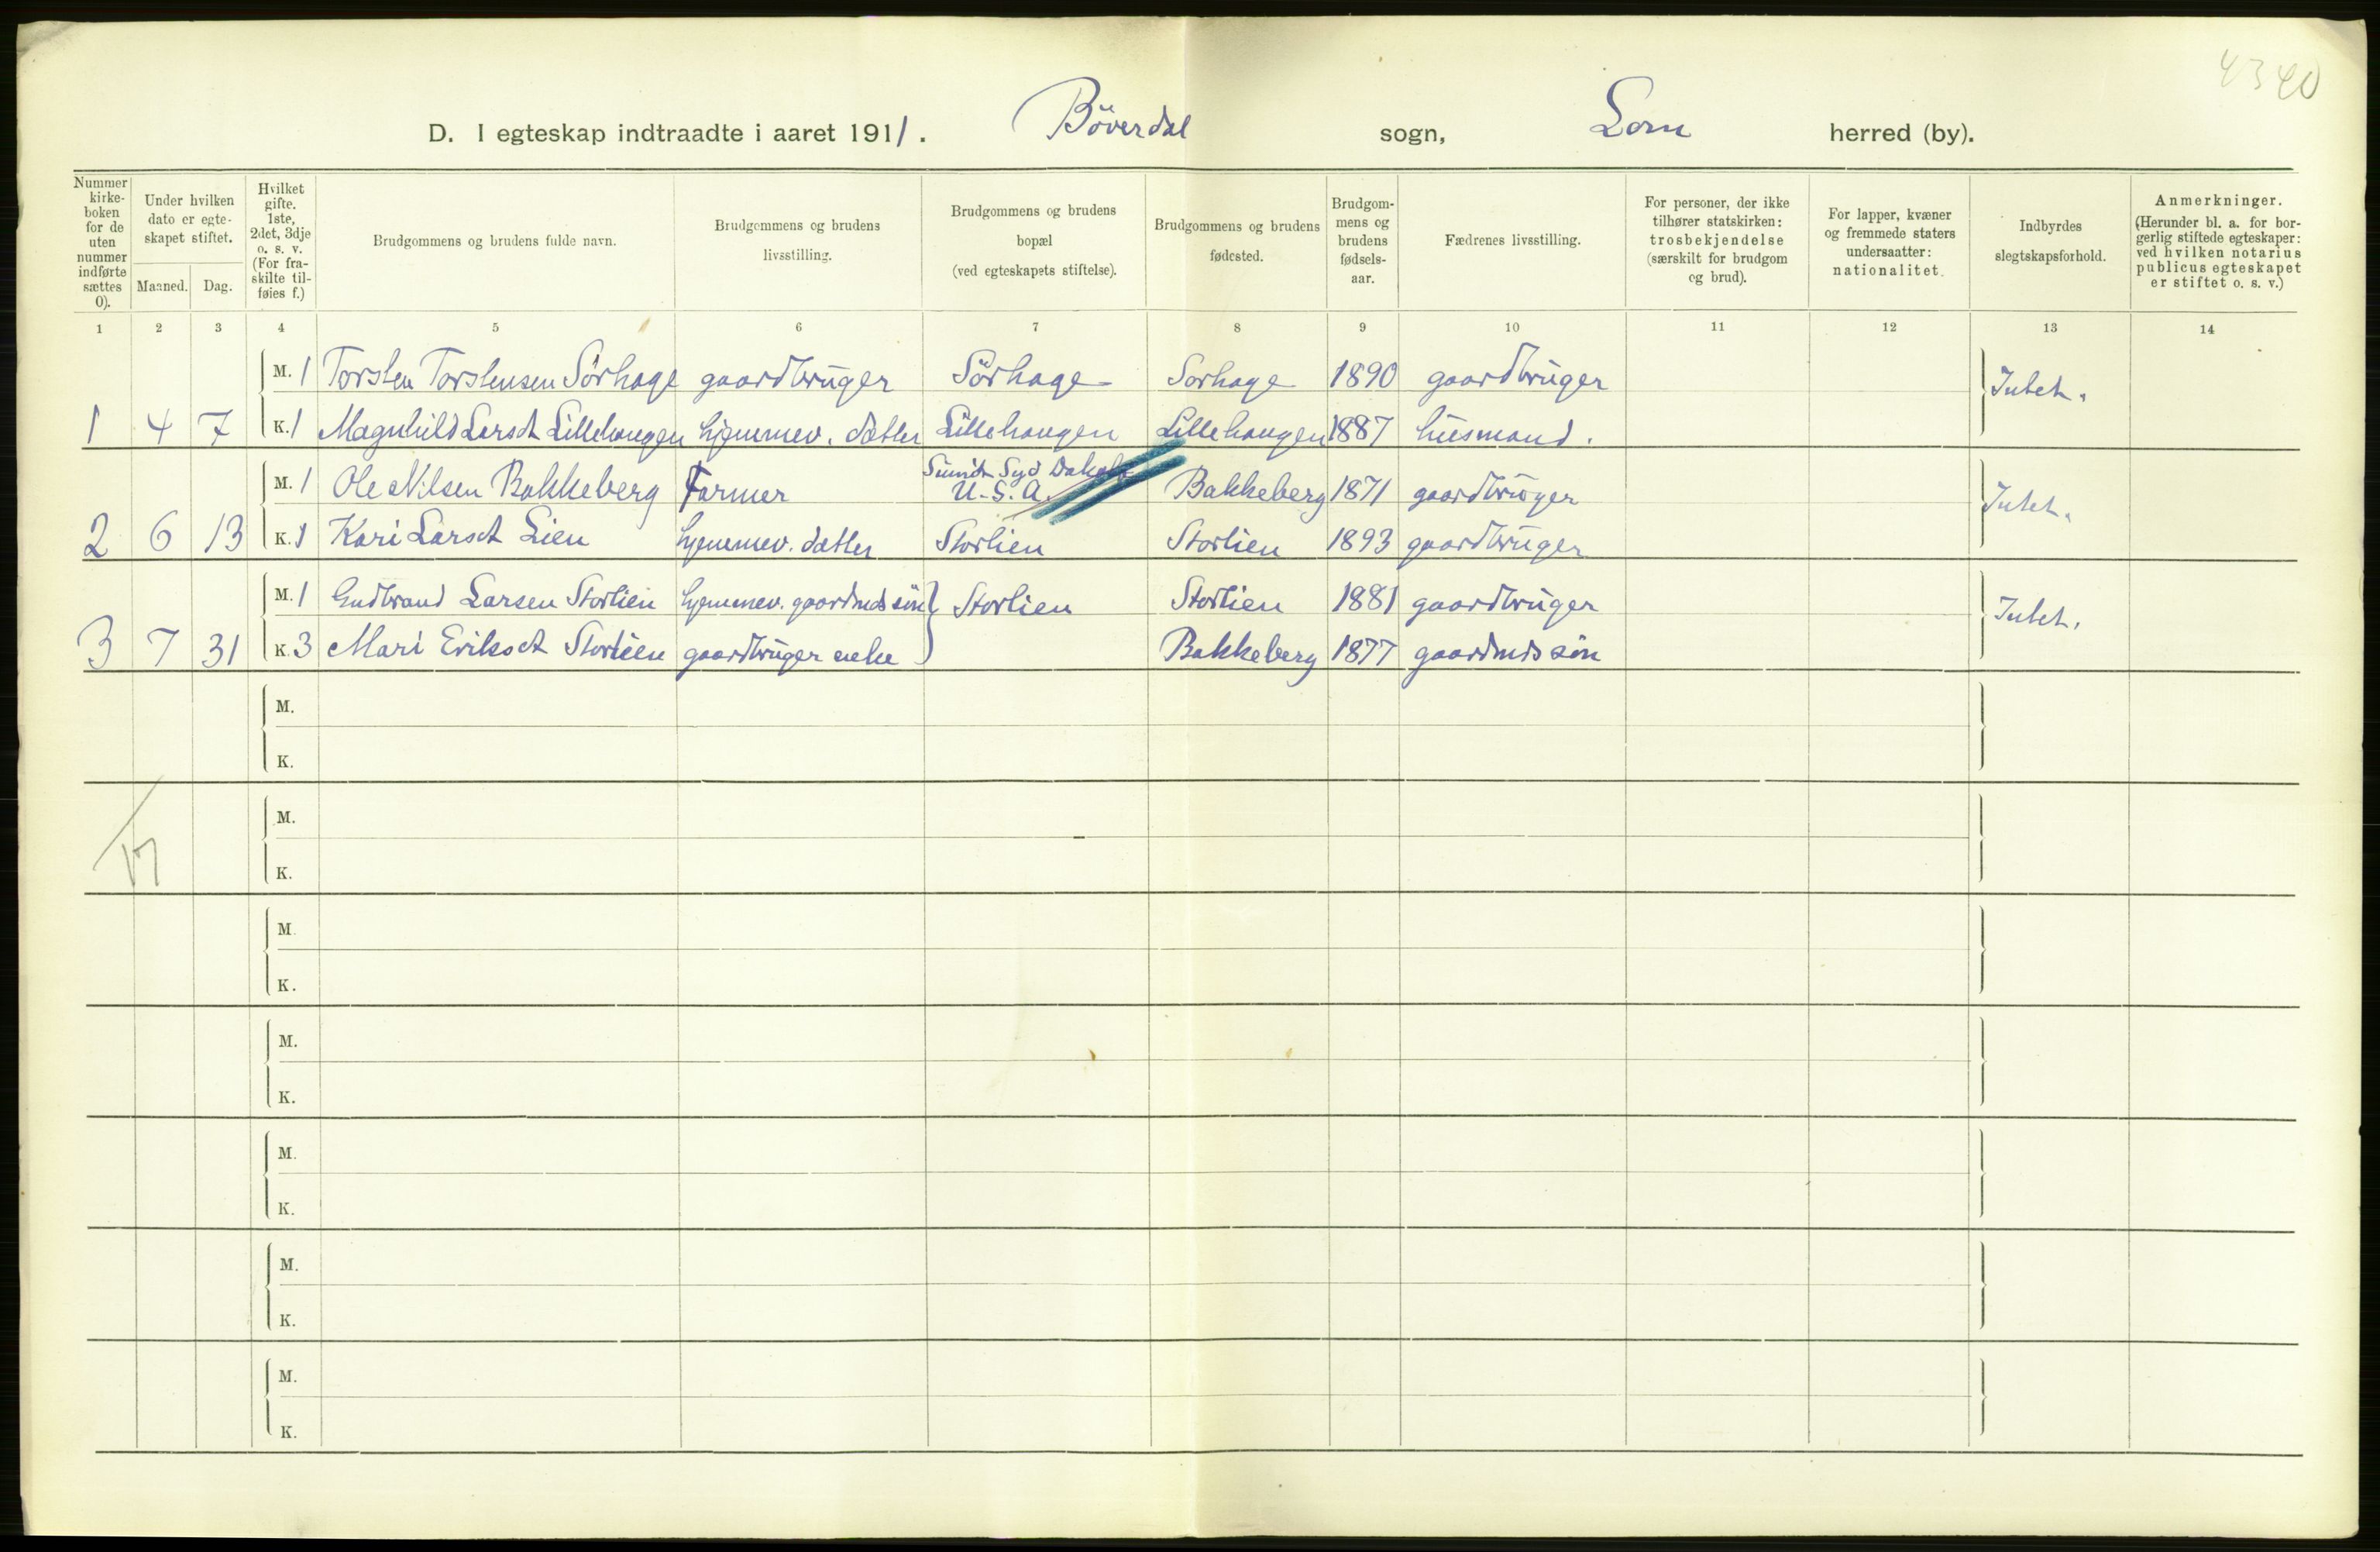 4340
D. I egteskap indtraadte i aaret 1911. Böverdal sogn, Lom herred (by).
Nummer kirkeboken for de uten nummer indførte sættes 0).
Under hvilken dato er egteskapet stiftet.
Maaned. Dag.
Hvilket gifte. 1ste, 2det, 3dje o. s. v. (For fraskilte tilføies f.)
Brudgommens og brudens fulde navn.
Brudgommens og brudens livsstilling.
Brudgommens og brudens bopæl (ved egteskapets stiftelse).
Brudgommens og brudens fødested.
Brudgommens og brudens fødselsaar.
Fædrenes livsstilling.
For personer, der ikke tilhører statskirken: trosbekjendelse (særskilt for brudgom og brud).
For lapper, kvæner og fremmede staters undersaatter: nationalitet.
Indbyrdes slegtskapsforhold.
Anmerkninger. (Herunder bl. a. for borgerlig stiftede egteskaper: ved hvilken notarius publicus egteskapet er stiftet o. s. v.)
1 2 3 4 5 6 7 8 9 10 11 12 13 14
M. 1 Torsten Torstensen Sörhage gaardbruger Sörhage Sörhage 1890 gaardbruger Intet.
1 4 7 K. 1 Magnhild Larsdt Lillehaugen hjemmev. datter Lillehaugen Lillehaugen 1887 husmand.
M. 1 Ole Nilsen Bakkeberg Farmer Syd Dakota U.S.A. Bakkeberg 1871 gaardbruger Intet.
2 6 13 K. 1 Kari Larsdt Lien hjemmev. datter Storlien Storlien 1893 gaardbruger
M. 1 Gudbrand Larsen Storlien hjemmev. gaardmds sön Storlien Storlien 1881 gaardbruger Intet.
3 7 31 K. 3 Mari Eriksdt Storlien gaardbruger enke Bakkeberg 1877 gaardmds sön
M.
K.
M.
17
K.
M.
K.
M.
K.
M.
K.
M.
K.
M.
K.